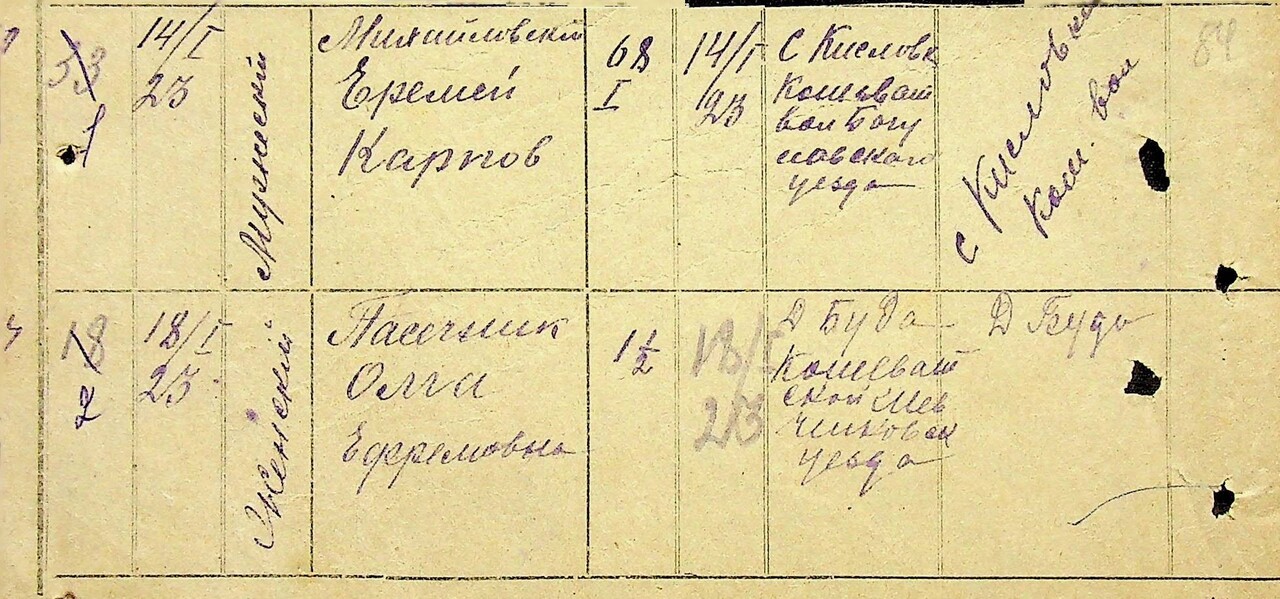 53
1
14/I
23
Мужеский
Михайловский
Еремей
Карпов
68
I
14/I
23
С Кисловк
Кошеват
вол Богу
славского
уезда
с Кисловка
Кош. вол
84
18
2
18/I
23
Женский
Пасечник
Олга
Ефремовна
1 1/2
18/I
23
Д Буда
Кошеват
ской Шев
ченковск
уезда
Д Буда